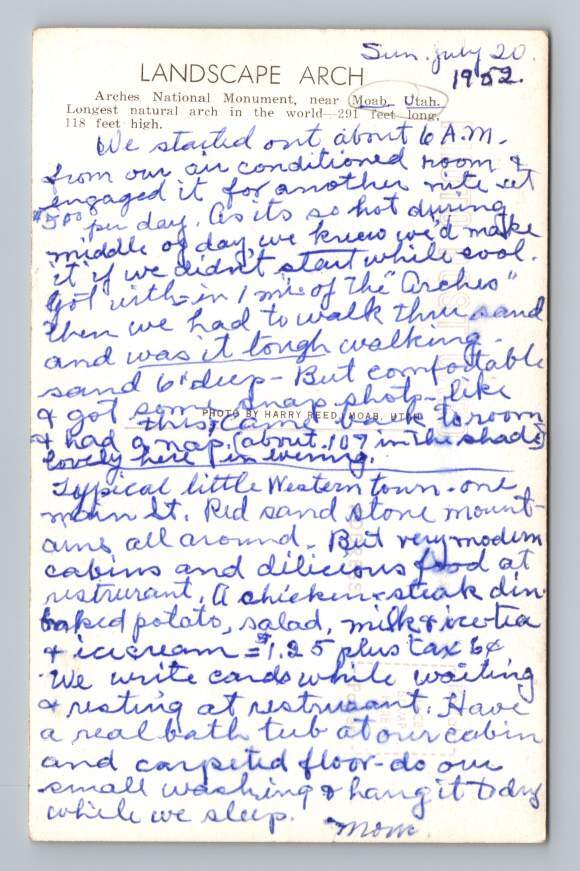 Sun. July 20.
1952.
LANDSCAPE ARCH
Arches National Monument, near Moab, Utah.
Longest natural arch in the world—291 feet long,
118 feet high.
We started out about 6 A.M.
from our air conditioned room &
engaged it for another nite at
$5.00 per day. As its so hot during
middle of day, we knew we'd make
it if we didn't start while cool.
Got with-in 1 mi. of the "Arches"
then we had to walk thru sand
and was it tough walking.
sand 6" deep - But comfortable
& got some snap shots - like
PHOTO BY HARRY REED, MOAB, UTAH
this, Came back to room
& had a nap. (about 107 in the shade)
lovely here in evening.
Typical little Western town - one
main St. Red sand stone mount-
ains all around. But very modern
cabins and dilicious food at
restrurant. A chicken & steak din.
baked potato, salad, milk & ice-tea
& icecream = $1.25 plus tax 6¢
We write cards while waiting
& resting at restrurant. Have
a real bath tub at our cabin
and carpeted floor - do our
small washing & hang it to dry
while we sleep.
Mom.